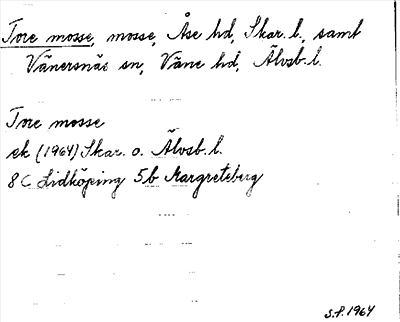 Tore mosse, mosse, Åse hd, Skar. l., samt
Vänersnäs sn, Väne hd, Älvsb. l.
Tore mosse
ek (1964) Skar. o. Älvsb. l.
8 C Lidköping 5b Margreteberg
S.F. 1964